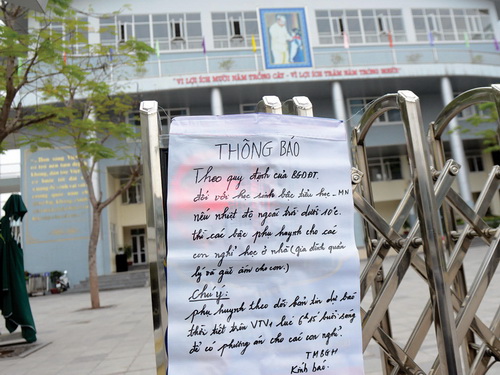 VÌ LỢI ÍCH MƯỜI NĂM TRỒNG CÂY - VÌ LỢI ÍCH TRĂM NĂM TRỒNG NGƯỜI
THÔNG BÁO
Theo quy định của BGDĐT.
đối với học sinh bậc tiểu học - MN
nếu nhiệt độ ngoài trời dưới 10°c.
thì các bậc phụ huynh cho các
con nghỉ học ở nhà (gia đình quản
lý và giữ ấm cho con.)
Chú ý:
phụ huynh theo dõi bản tin dự báo
thời tiết trên VTV1 lúc 6h15 buổi sáng
để có phương án cho các con nghỉ.
TMBGH
Kính báo.